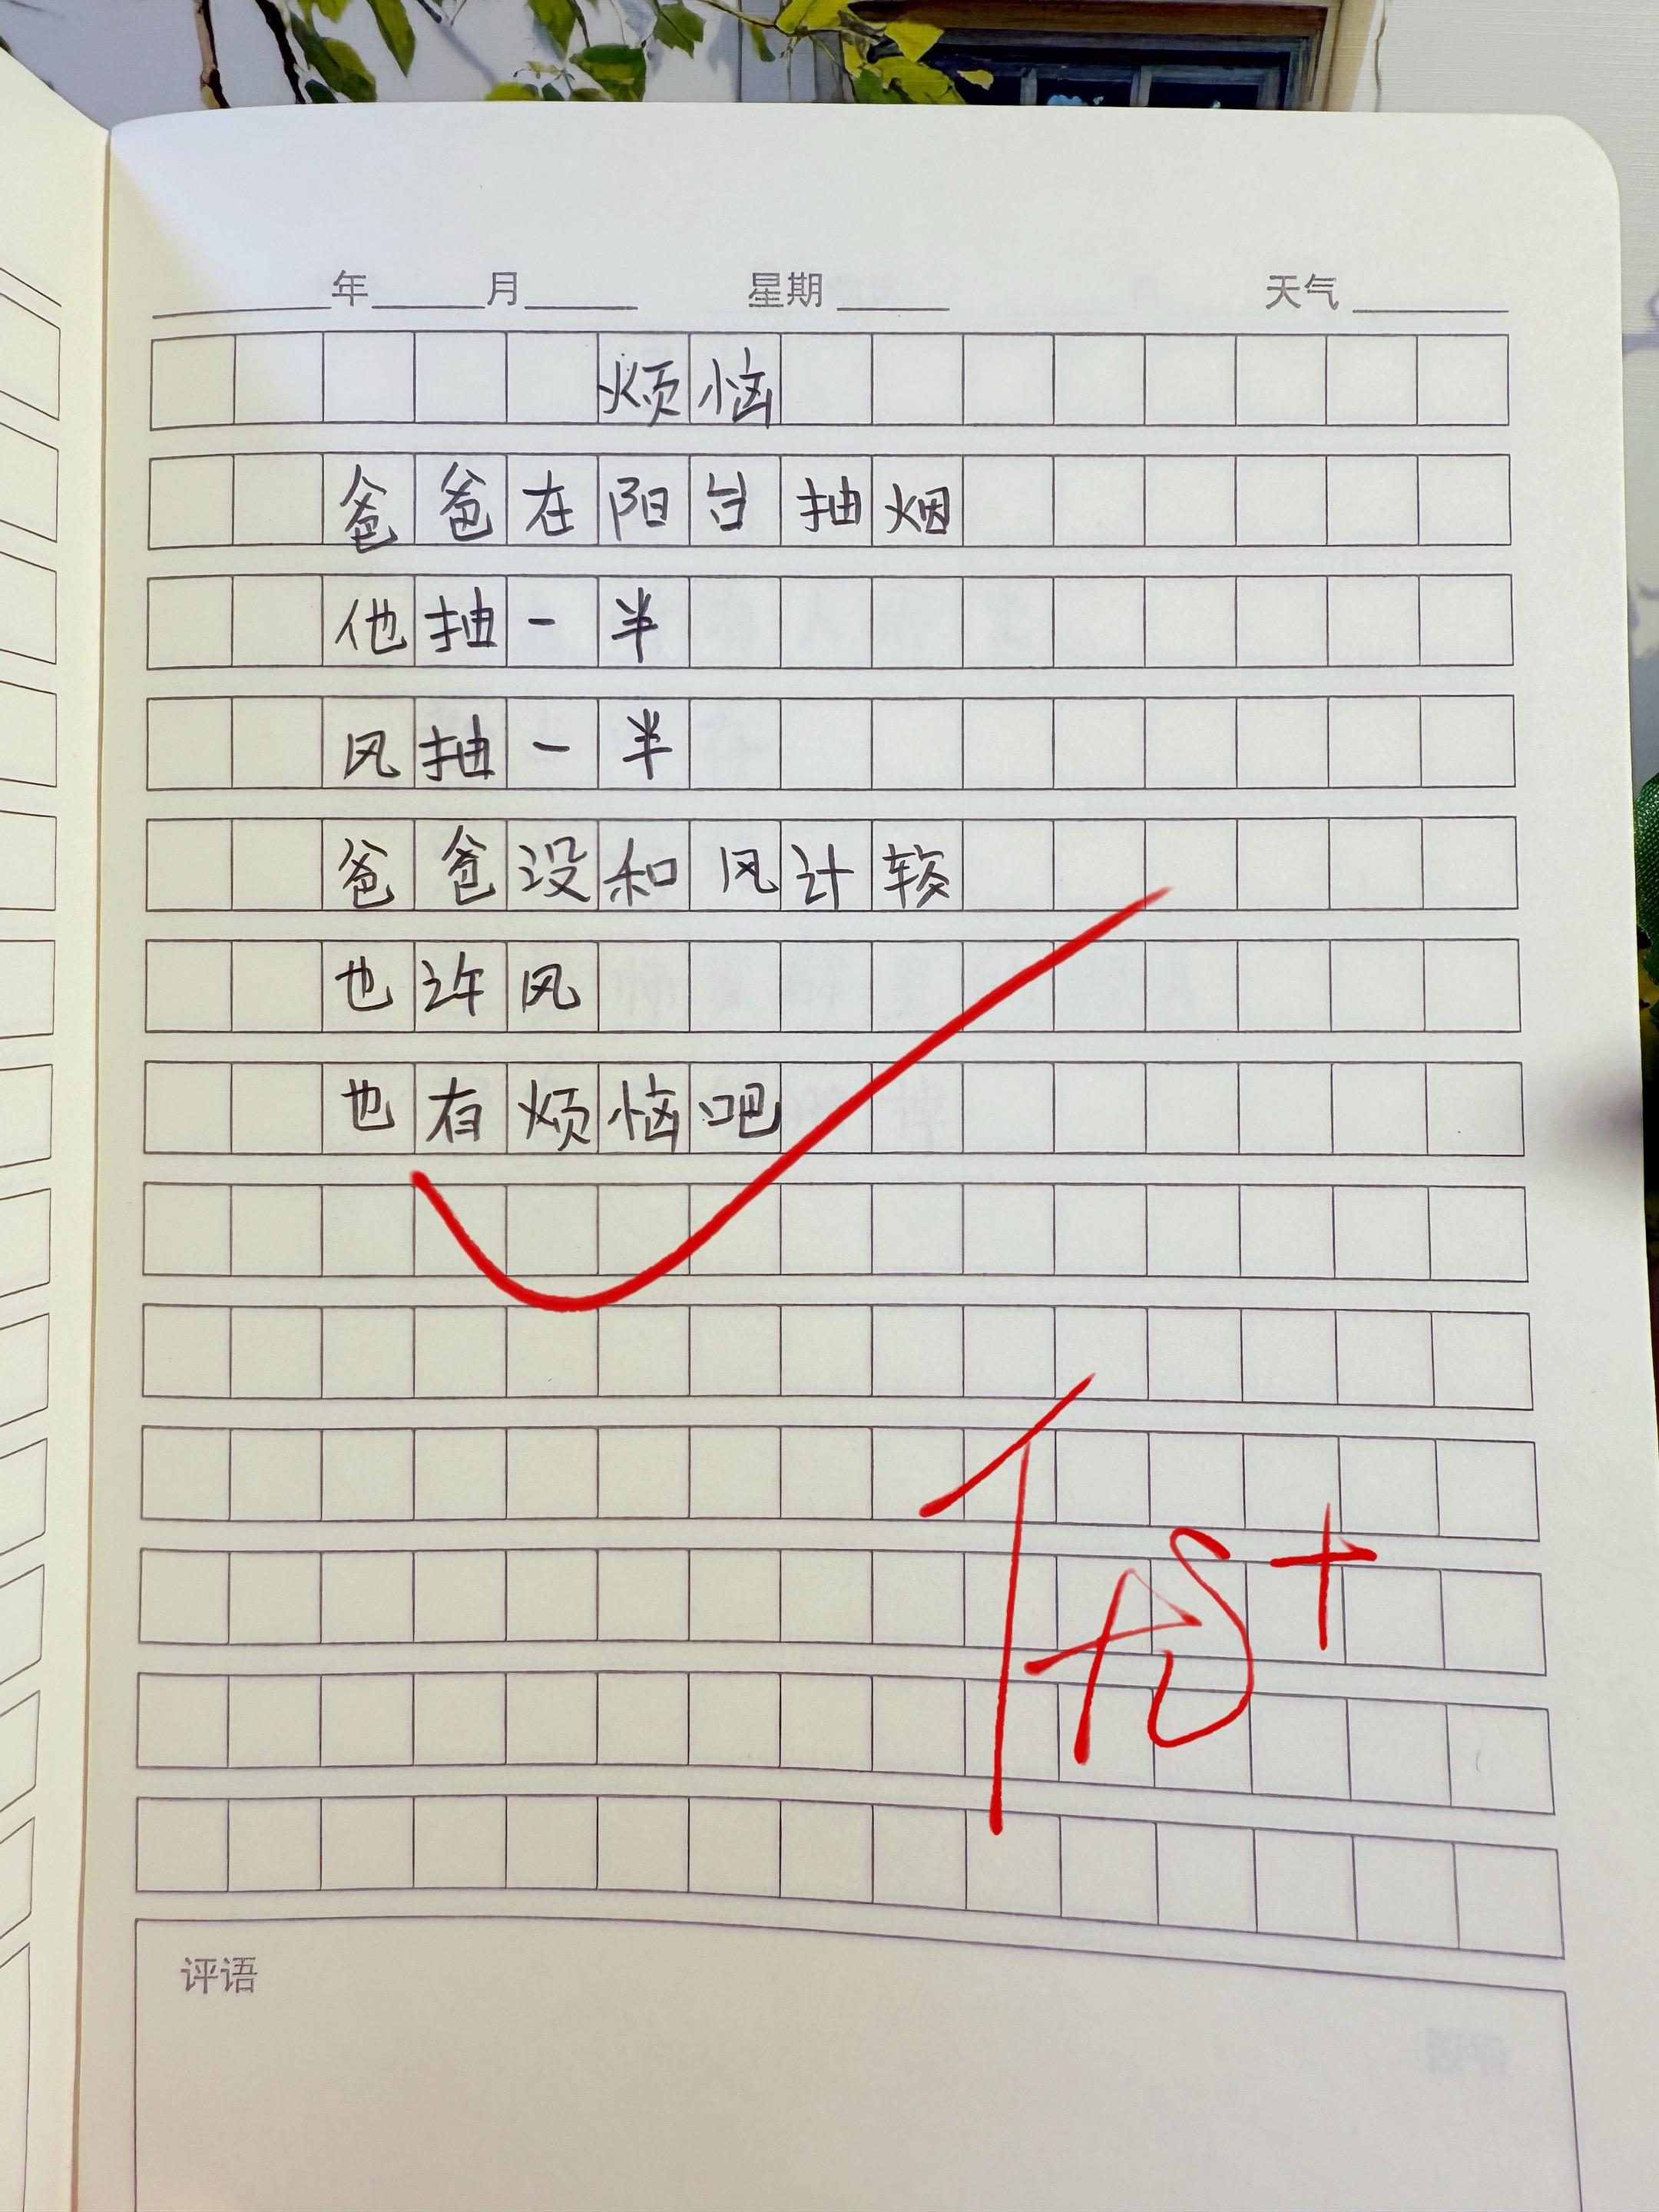 年 月 星期 天气
烦恼
爸爸在阳台抽烟
他抽一半
风抽一半
爸爸没和风计较
也许风
也有烦恼吧
评语